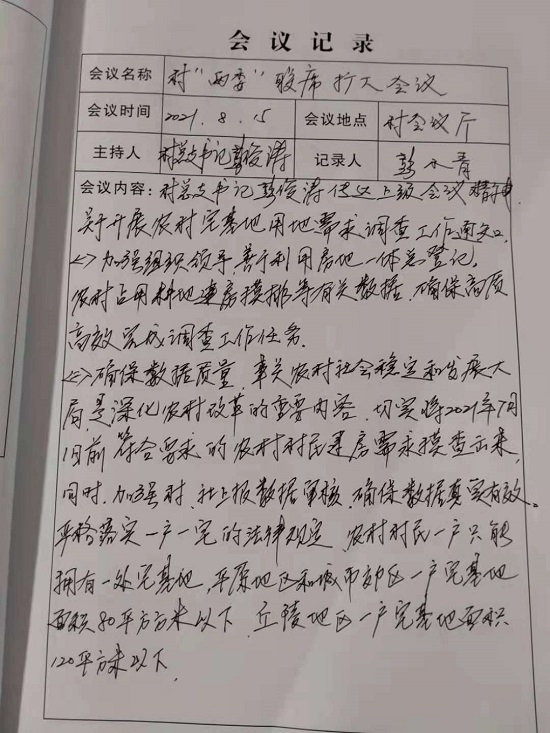 会议记录
会议名称 村"两委"联席扩大会议
会议时间 2021.8.15 会议地点 村会议厅
主持人 村总支书记彭俊涛 记录人 彭小青
会议内容：村总支书记彭俊涛传达上级会议精神
关于开展农村宅基地用地需求调查工作通知.
<一>加强组织领导,善于利用房地一体总登记,
农村占用耕地建房摸排等有关数据,确保高质
高效完成调查工作任务.
<二>确保数据质量,事关农村社会稳定和发展大
局,是深化农村改革的重要内容,切实将2021年7月
1日前符合要求的农村村民建房需求摸查出来,
同时,加强村,社上报数据审核,确保数据真实有效.
严格落实一户一宅的法律规定,农村村民一户只能
拥有一处宅基地,平原地区和城市郊区一户宅基地
面积80平方方米以下,丘陵地区一户宅基地面积
120平方米以下.